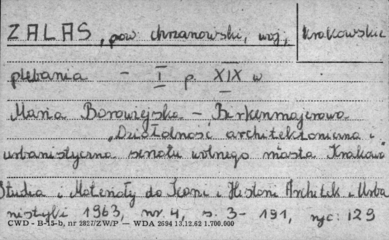 ZALAS, pow chrzanowski, woj. krakowskie
plebania - I p. XIX w
Maria Borowiejska - Birkenmajerowa
„Działalność architektoniczna i
urbanistyczna senatu wolnego miasta Krakowa
Studia i Materiały do Teorii i Historii Architek. i Urba
nistyki 1963, nr. 4, s. 3 - 191, ryc: 129
CWD - B-15-b, nr 2827/ZW/P — WDA 2694 13.12.62 1.700.000